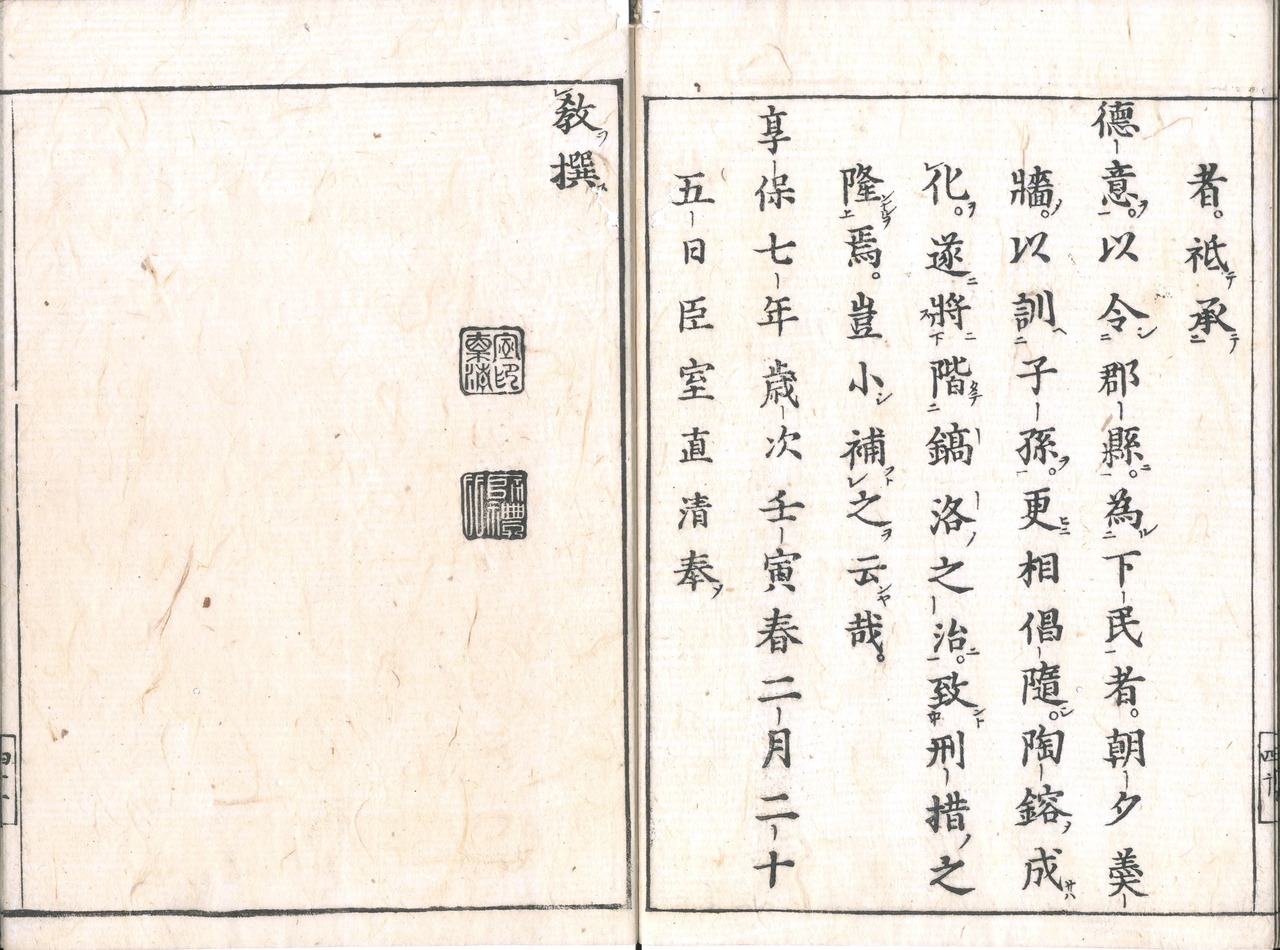 者。祗承
德意。以令郡縣。為下民者。朝夕羹
牆。以訓子孫。更相倡隨。陶鎔成
化。遂將階鎬洛之治。致刑措之
隆焉。豈小補之云哉。
享保七年歳次壬寅春二月二十
五日臣室直清奉
教撰